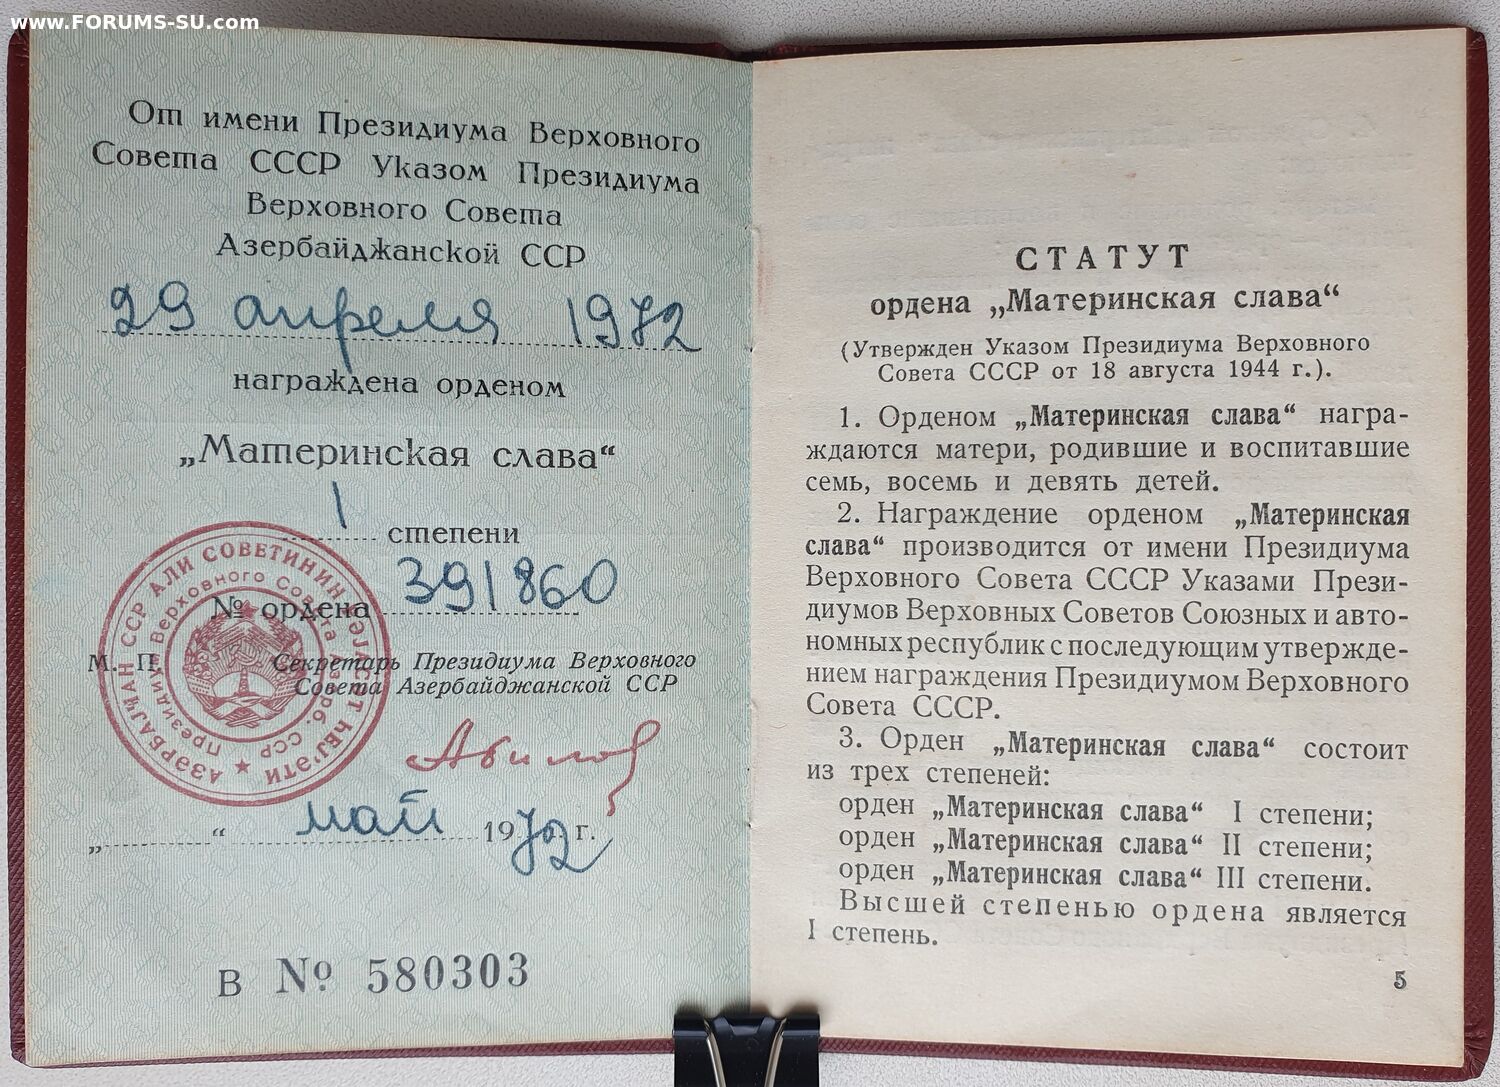 www.FORUMS-SU.com
От имени Президиума Верховного
Совета СССР Указом Президиума
Верховного Совета
Азербайджанской ССР
29 апреля 1972
награждена орденом
„Материнская слава“
I степени
№ ордена 391860
М. П.
Секретарь Президиума Верховного
Совета Азербайджанской ССР
„ “ май 1972 г.
В № 580303
АЗӘРБАЈҸАН ССР АЛИ СОВЕТИНИН РӘЈАСӘТ ҺЕЈ'ӘТИ
Президиум Верховного Совета Азерб. ССР
СТАТУТ
ордена „Материнская слава“
(Утвержден Указом Президиума Верховного
Совета СССР от 18 августа 1944 г.).
1. Орденом „Материнская слава“ награ-
ждаются матери, родившие и воспитавшие
семь, восемь и девять детей.
2. Награждение орденом „Материнская
слава“ производится от имени Президиума
Верховного Совета СССР Указами Прези-
диумов Верховных Советов Союзных и авто-
номных республик с последующим утвержде-
нием награждения Президиумом Верховного
Совета СССР.
3. Орден „Материнская слава“ состоит
из трех степеней:
орден „Материнская слава“ I степени;
орден „Материнская слава“ II степени;
орден „Материнская слава“ III степени.
Высшей степенью ордена является
I степень.
5